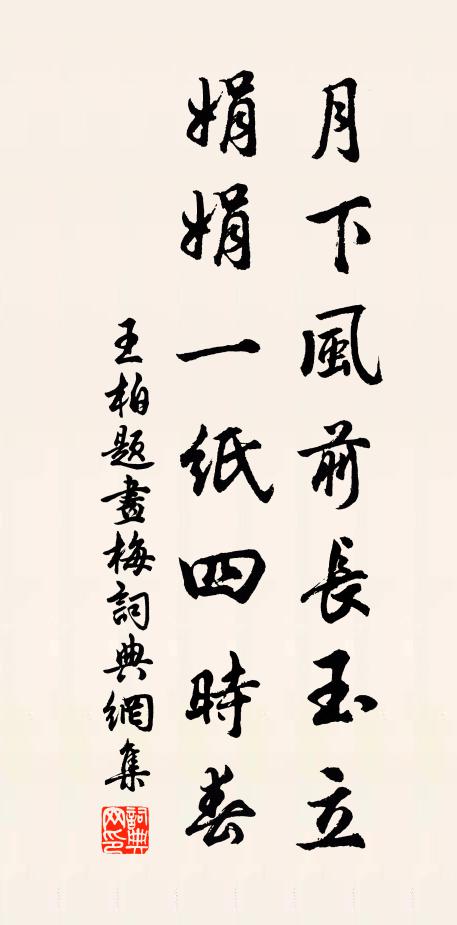 月下風前長玉立
娟娟一紙四時春
王柏題畫梅詞典網集
詞典網印